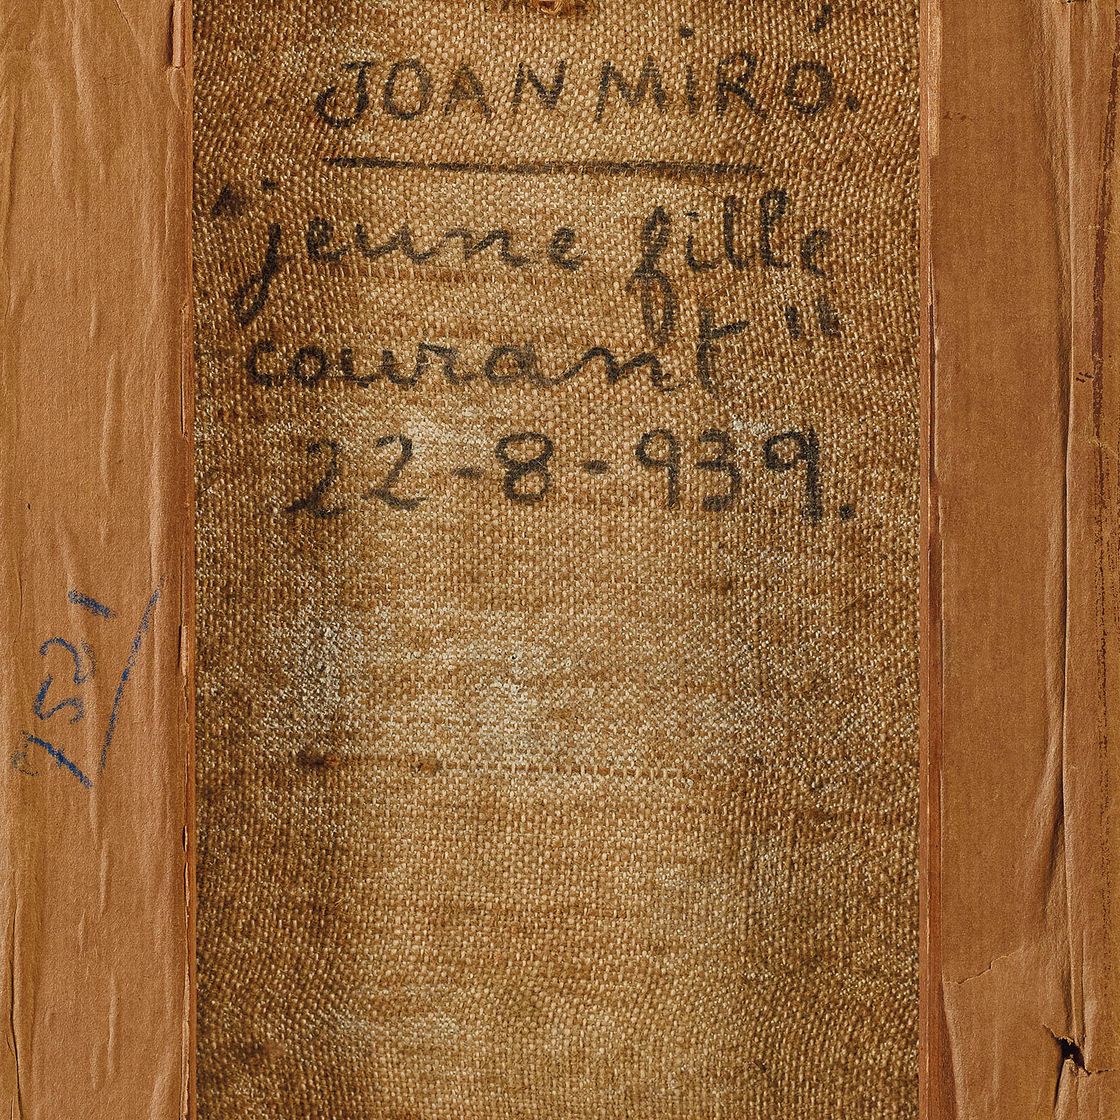 JOAN MIRÓ.
"jeune fille
courant"
22-8-939.
7521